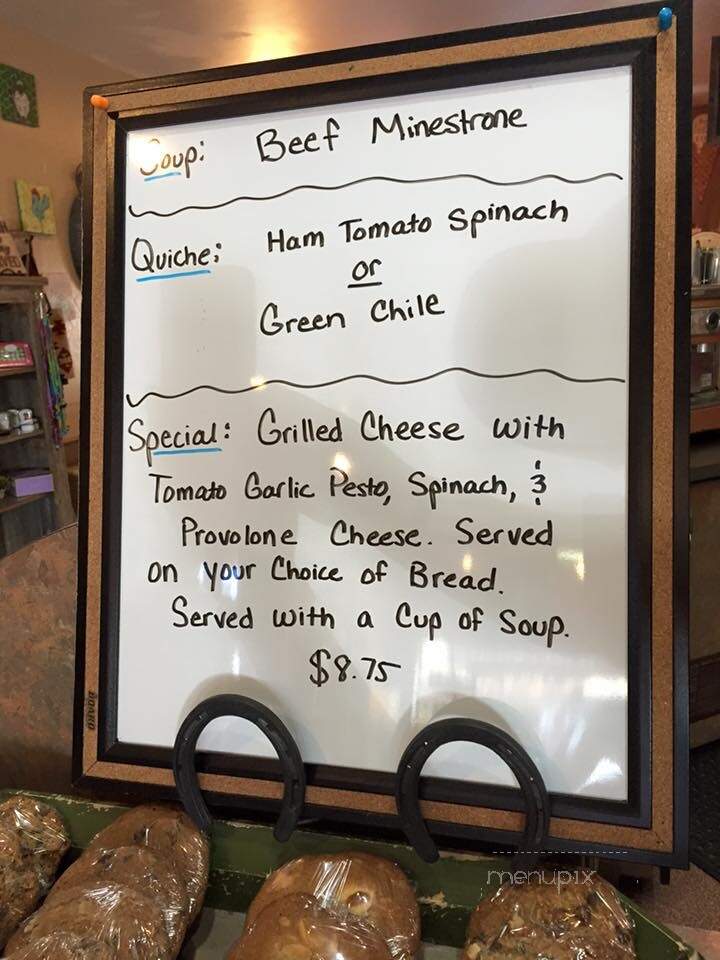 Soup: Beef Minestrone
Quiche: Ham Tomato Spinach
or
Green Chile
Special: Grilled Cheese with
Tomato Garlic Pesto, Spinach, &
Provolone Cheese. Served
on your Choice of Bread.
Served with a Cup of Soup.
$8.75
BOARD
menupix